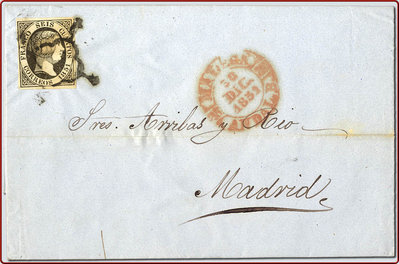 FRANCO SEIS CUARTOS
CORREOS 1851
30
DIC.
1851
Sres. Arribas y Rio
Madrid